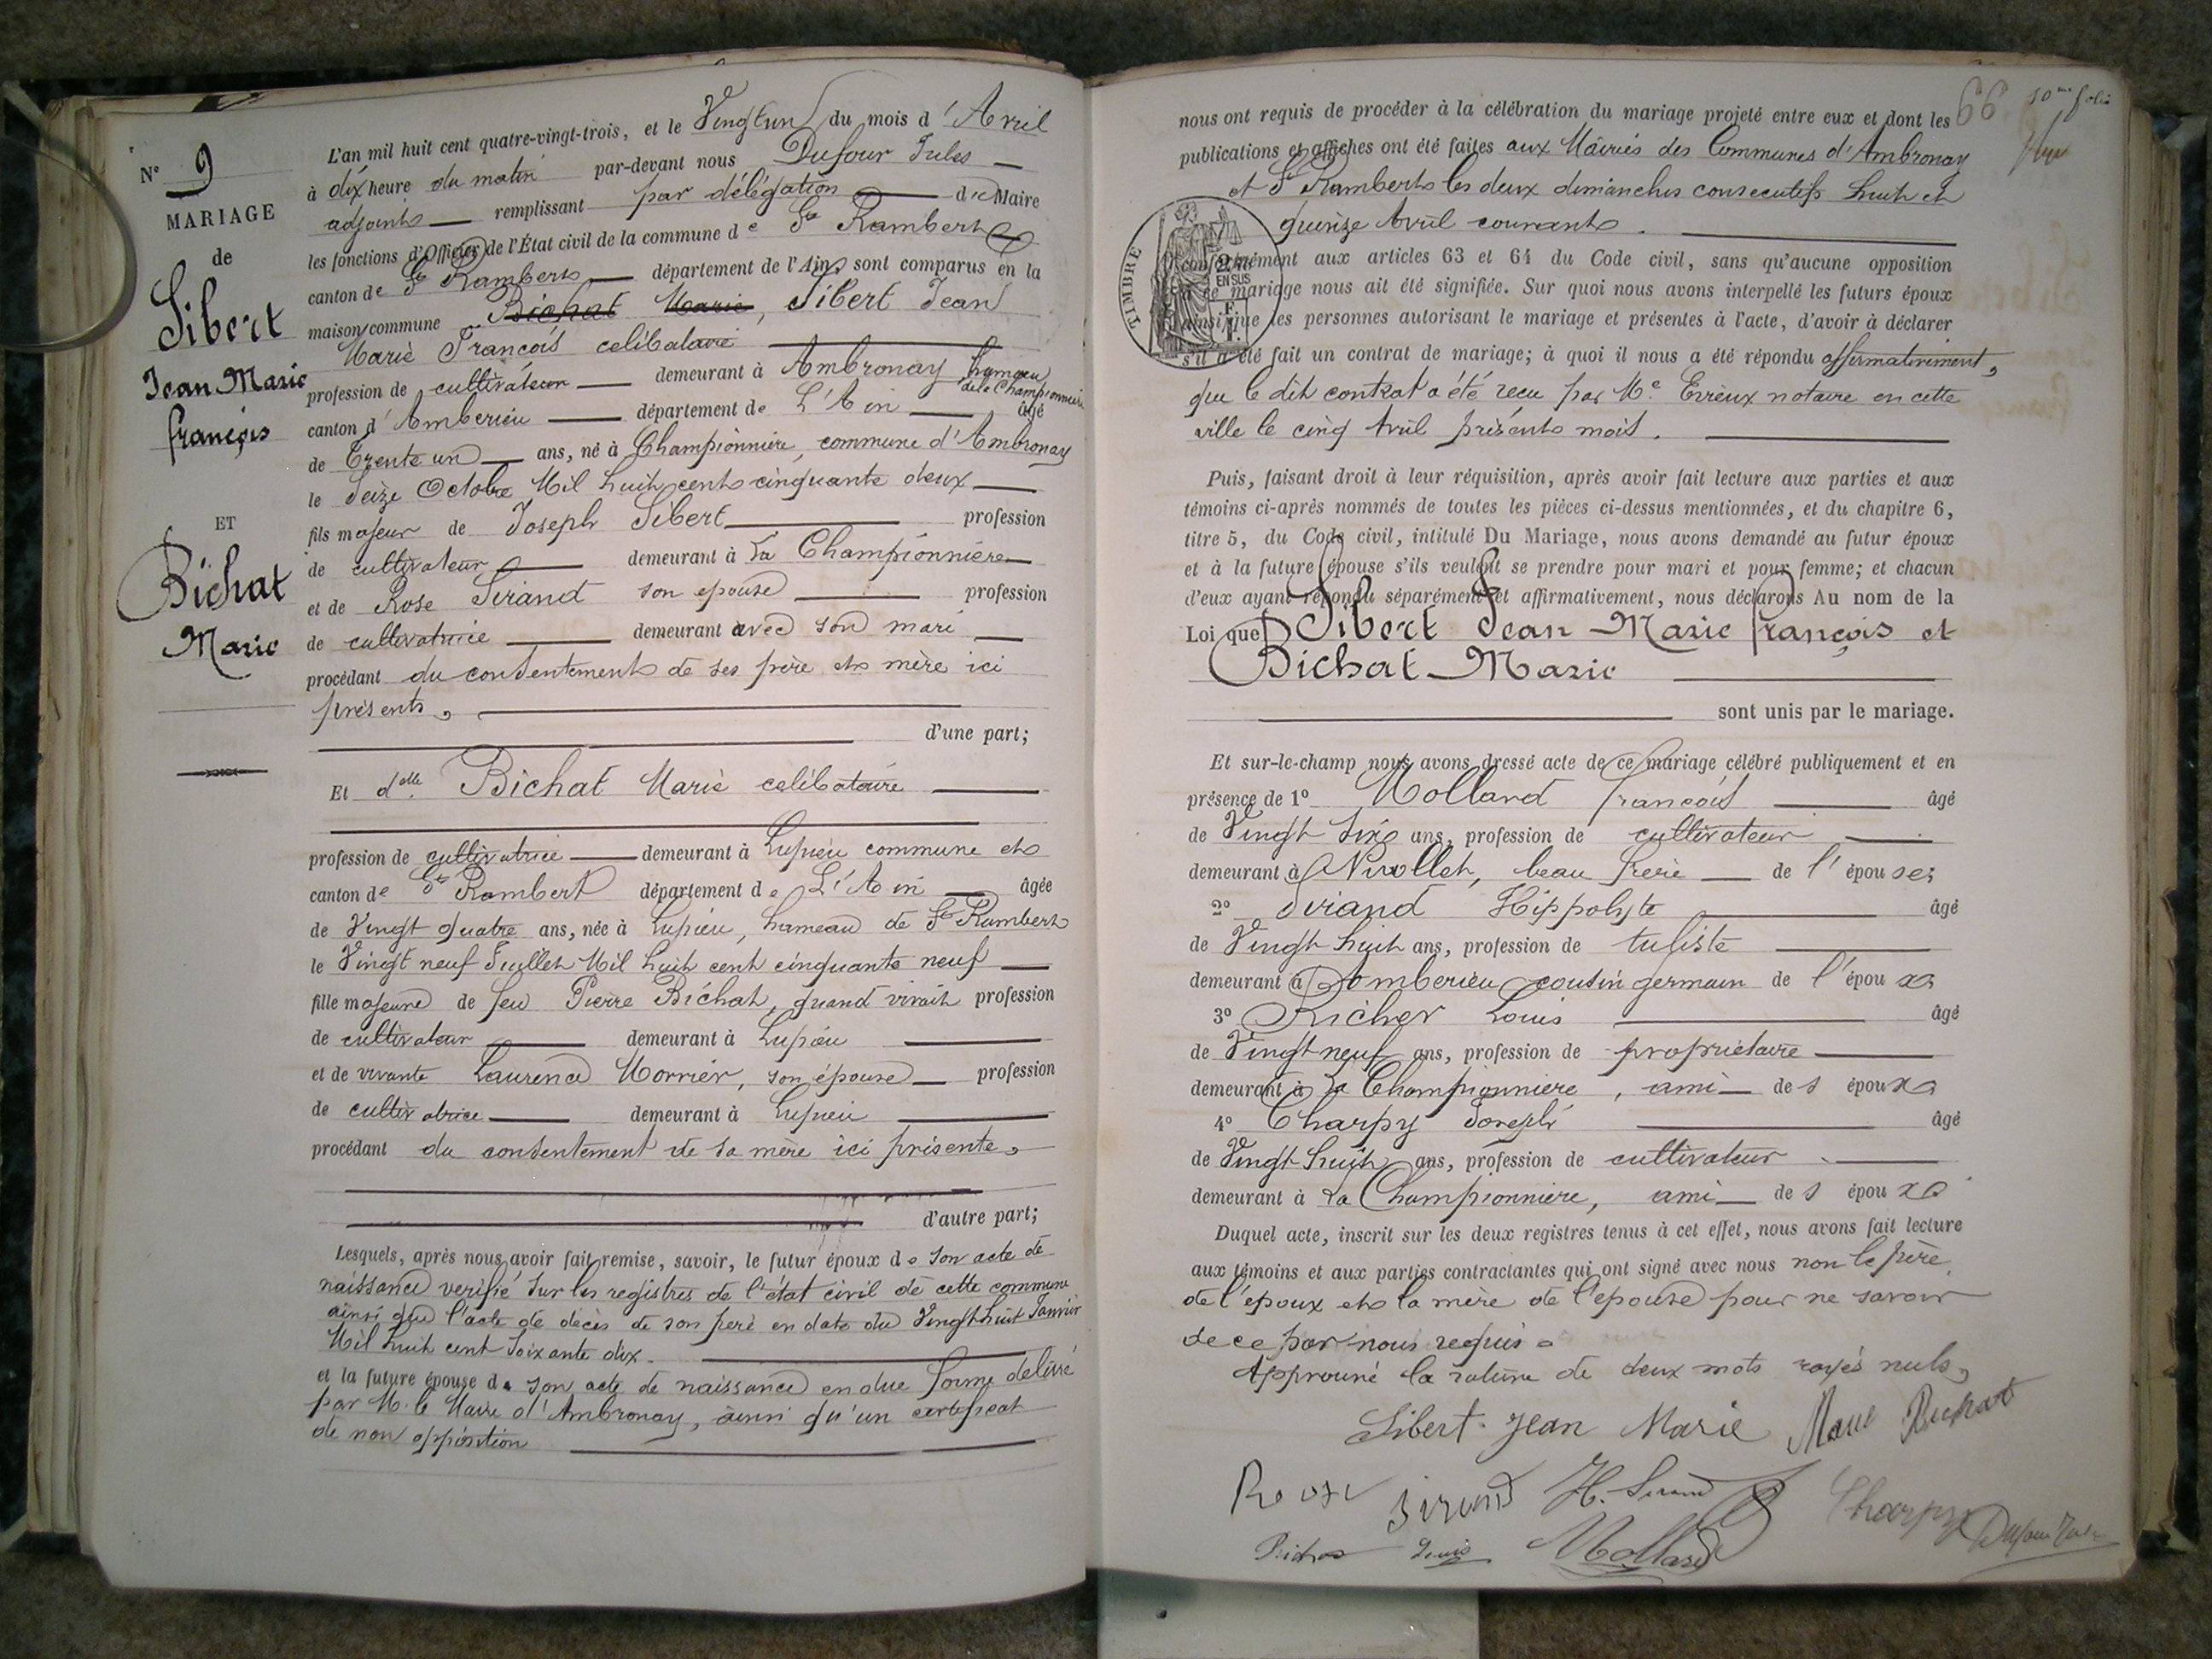 N° 9
MARIAGE
de
Sibert
Jean Marie
françois
ET
Bichat
Marie
L'an mil huit cent quatre-vingt-trois, et le Vingt un du mois d'Avril
à dix heure du matin par-devant nous Dufour Jules
adjoint remplissant par délégation du Maire
les fonctions d'Officier de l'État civil de la commune de St Rambert
canton de St Rambert département de l'Ain, sont comparus en la
maison commune Bichat Marie, Sibert Jean
Marie François celibataire
profession de cultivateur demeurant à Ambronay hameau
de la Championnière
canton d'Amberieu département de L'Ain âgé
de Trente un ans, né à Championnière, commune d'Ambronay
le Seize Octobre Mil huit cent cinquante deux
fils majeur de Joseph Sibert profession
de cultivateur demeurant à La Championnière
et de Rose Sirand son epouse profession
de cultivatrice demeurant avec son mari
procédant du consentement de ses père et mère ici
présents,
d'une part;
Et dlle Bichat Marie celibataire
profession de cultivatrice demeurant à Lupieu commune et
canton de St Rambert département de L'Ain âgée
de Vingt quatre ans, née à Lupieu, hameau de St Rambert
le Vingt neuf Juillet Mil huit cent cinquante neuf
fille majeure de feu Pierre Bichat, quand vivait profession
de cultivateur demeurant à Lupieu
et de vivante Laurence Morrier, son épouse profession
de cultivatrice demeurant à Lupieu
procédant du consentement de sa mère ici présente,
d'autre part;
Lesquels, après nous avoir fait remise, savoir, le futur époux de son acte de
naissance verifié sur les registres de l'état civil de cette commune
ainsi que l'acte de décès de son père en date du Vingt huit Janvier
Mil huit cent soixante dix.
et la future épouse de son acte de naissance en due forme delivré
par M. le Maire d'Ambronay, ainsi qu'un certificat
de non opposition
66 10me folio
nous ont requis de procéder à la célébration du mariage projeté entre eux et dont les
publications et affiches ont été faites aux Mairies des Communes d'Ambronay
et St Rambert les deux dimanches consecutifs huit et
quinze Avril courant.
TIMBRE
EN SUS
conformément aux articles 63 et 64 du Code civil, sans qu'aucune opposition
à ce mariage nous ait été signifiée. Sur quoi nous avons interpellé les futurs époux
ainsi que les personnes autorisant le mariage et présentes à l'acte, d'avoir à déclarer
s'il a été fait un contrat de mariage; à quoi il nous a été répondu affirmativement,
que le dit contrat a été reçu par Me Erreux notaire en cette
ville le cinq Avril présent mois.
Puis, faisant droit à leur réquisition, après avoir fait lecture aux parties et aux
témoins ci-après nommés de toutes les pièces ci-dessus mentionnées, et du chapitre 6,
titre 5, du Code civil, intitulé Du Mariage, nous avons demandé au futur époux
et à la future épouse s'ils veulent se prendre pour mari et pour femme; et chacun
d'eux ayant répondu séparément et affirmativement, nous déclarons Au nom de la
Loi que Sibert Jean Marie François et
Bichat Marie
sont unis par le mariage.
Et sur-le-champ nous avons dressé acte de ce mariage célébré publiquement et en
présence de 1° Molland François âgé
de Vingt six ans, profession de cultivateur
demeurant à Nivollet, beau frere de l'épouse;
2° Sirand Hippolyte âgé
de Vingt huit ans, profession de tuliste
demeurant à Amberieu cousin germain de l'époux
3° Richer Louis âgé
de Vingt neuf ans, profession de propriétaire
demeurant à La Championnière, ami des époux
4° Charpy Joseph âgé
de Vingt huit ans, profession de cultivateur
demeurant à La Championnière, ami des époux
Duquel acte, inscrit sur les deux registres tenus à cet effet, nous avons fait lecture
aux témoins et aux parties contractantes qui ont signé avec nous non le père
de l'époux et la mère de l'epouse pour ne savoir
de ce par nous requis
Approuvé la rature de deux mots rayés nuls,
Sibert Jean Marie Marie Bichat
Rose Sirand H. Sirand Charpy Dufour Jules
Richer Louis Mollard